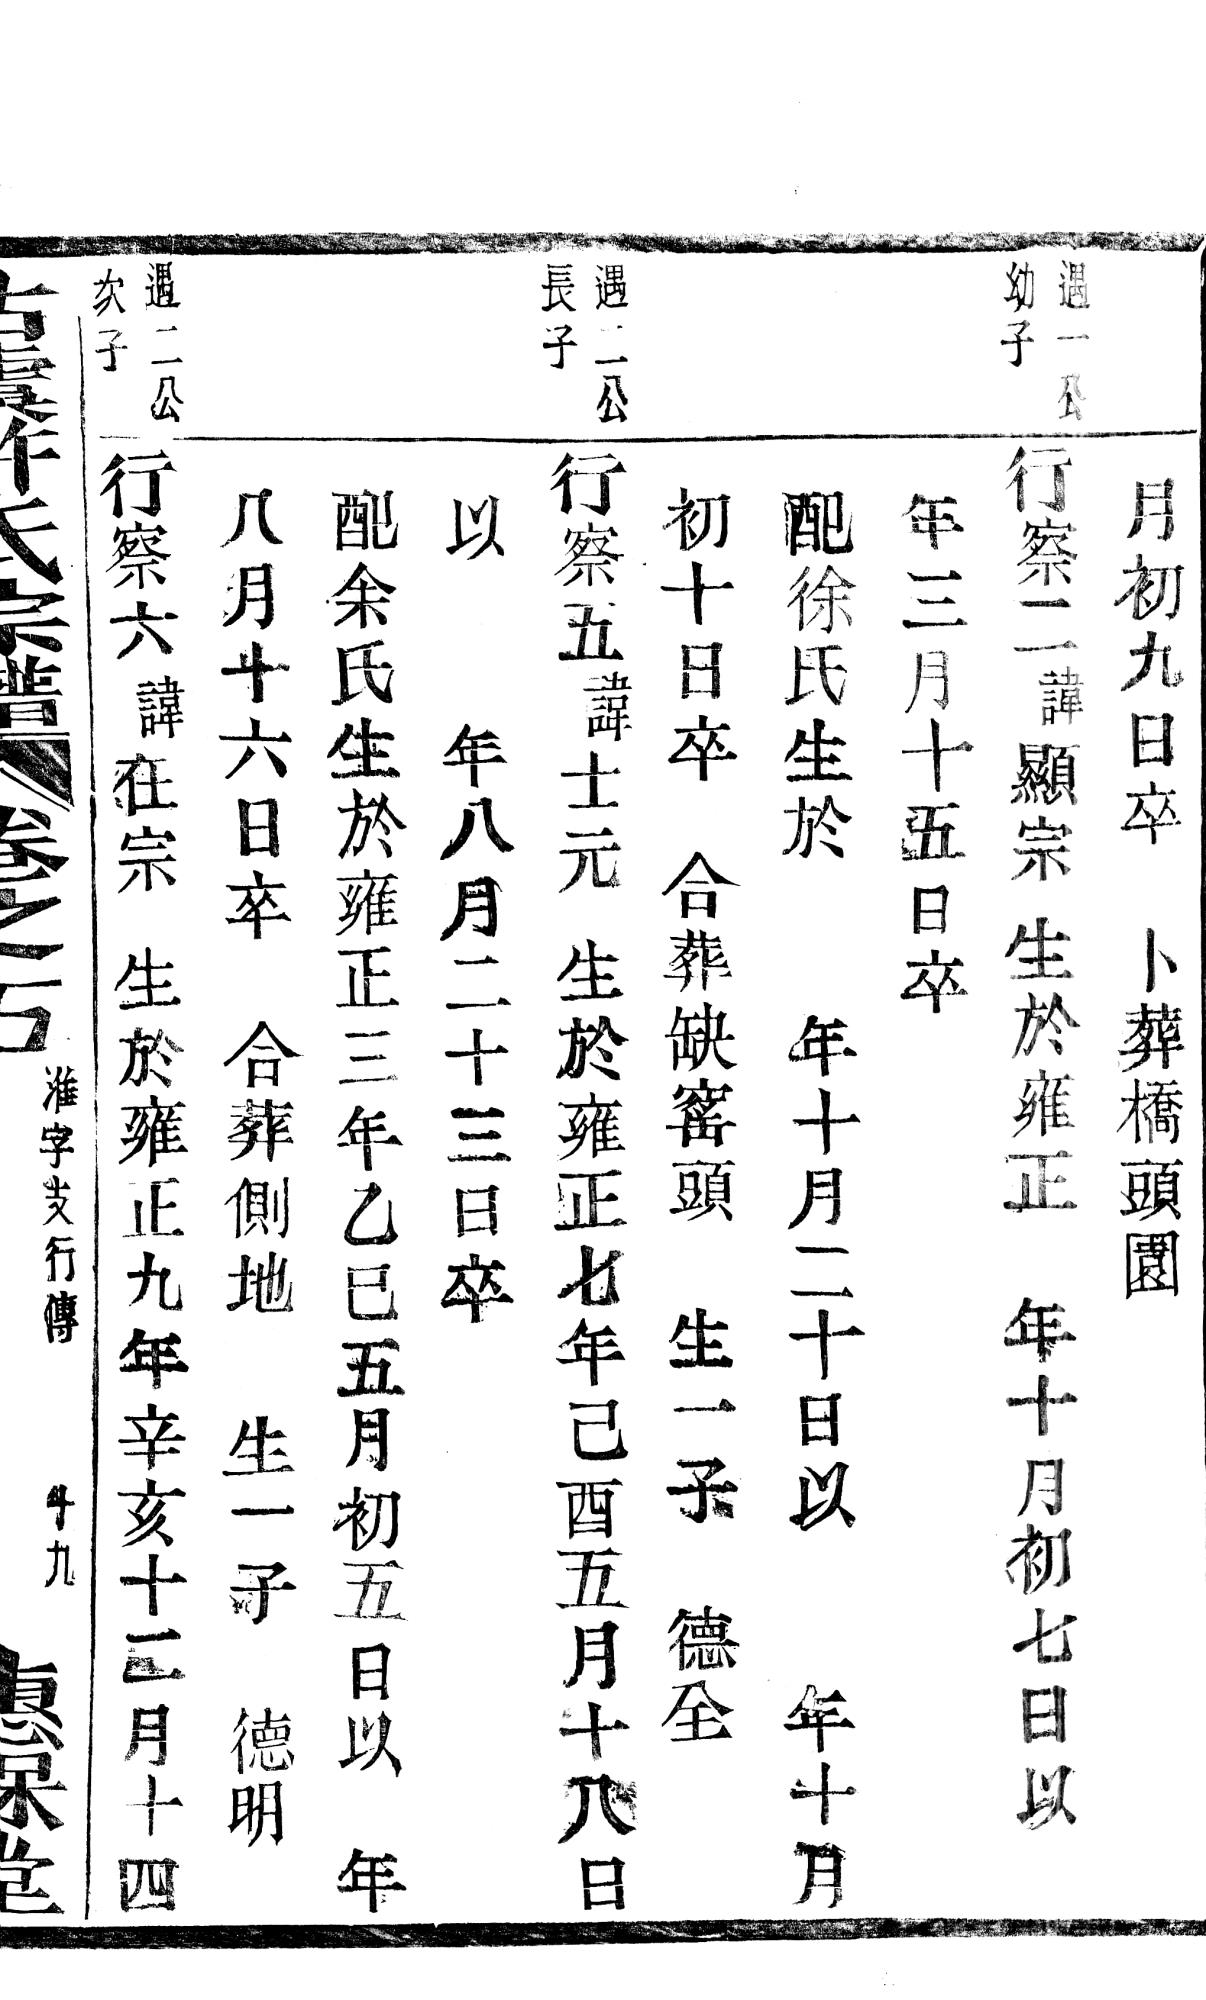 月初九日卒　卜葬橋頭園
遇一公
幼子
行察二一諱顯宗　生於雍正　年十月初七日以
年三月十五日卒
配徐氏生於　年十月二十日以　年十月
初十日卒　合葬缺窰頭　生一子　德全
遇二公
長子
行察五諱士元　生於雍正七年己酉五月十八日
以　年八月二十三日卒
配余氏生於雍正三年乙巳五月初五日以　年
八月十六日卒　合葬側地　生一子　德明
遇二公
次子
行察六諱在宗　生於雍正九年辛亥十二月十四
古虞許氏宗譜　卷之石
淮字支行傳
廿九
惠保堂